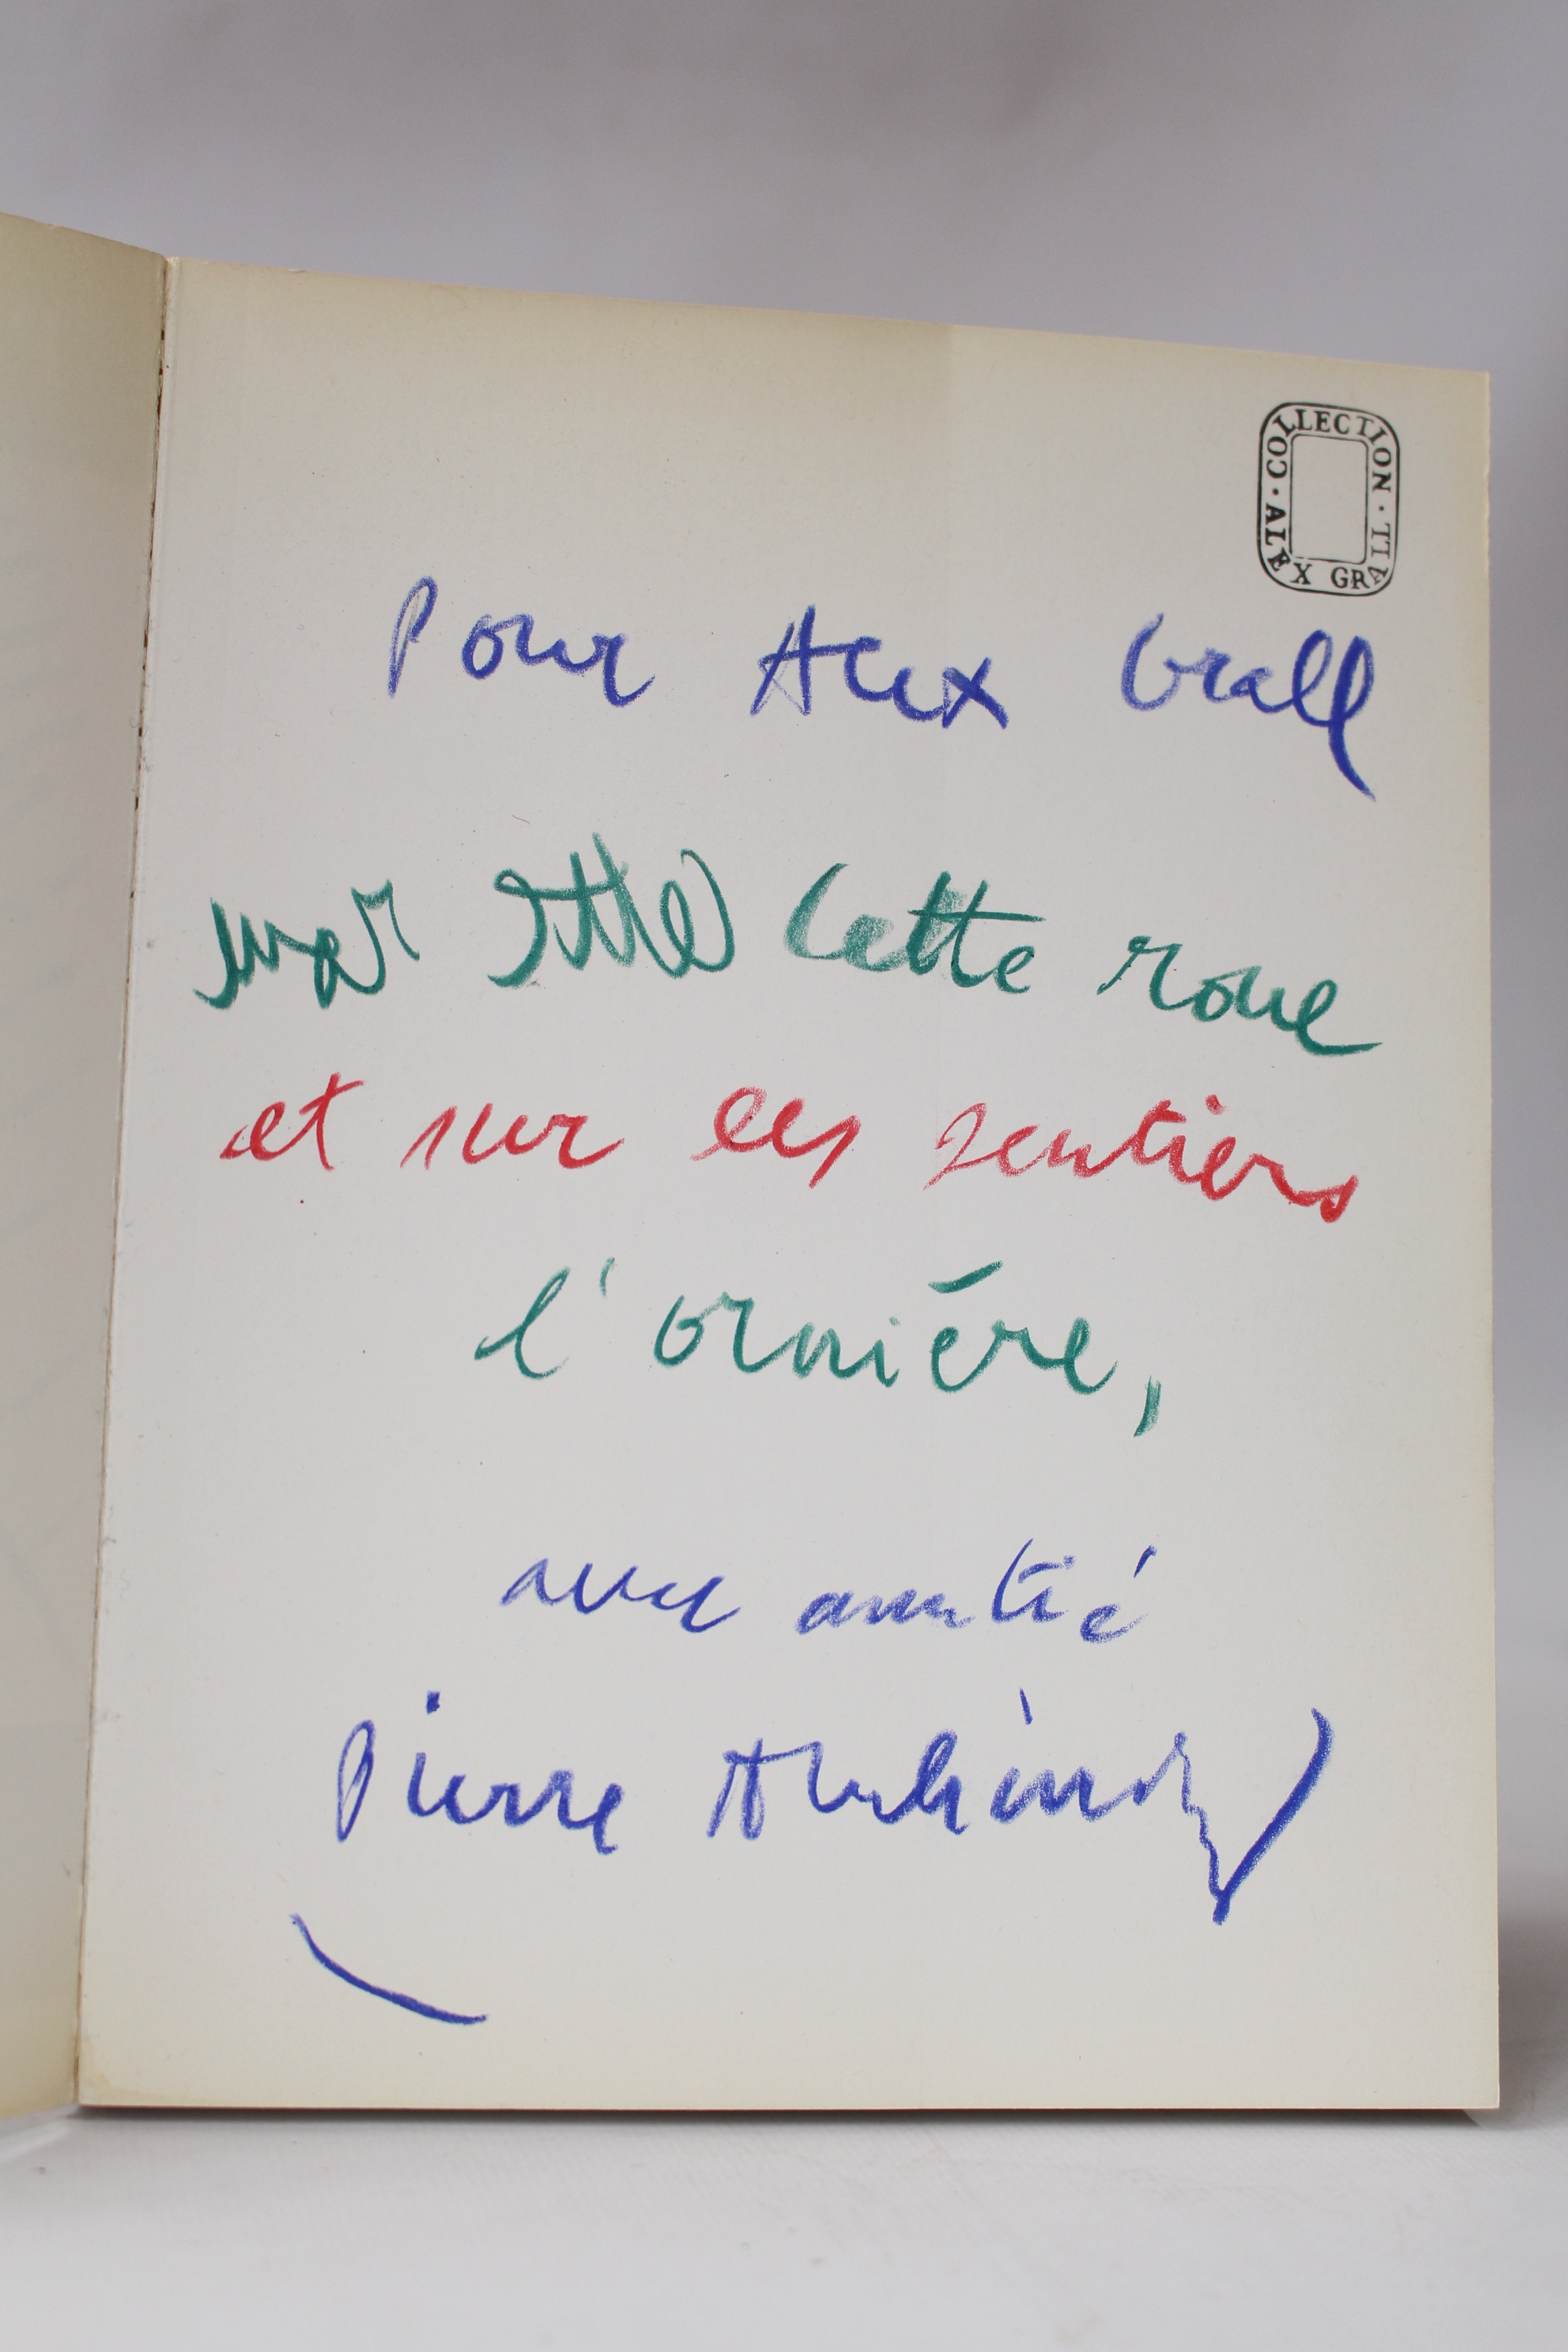 COLLECTION · ALEX GRALL ·
Pour Alex Grall
cette roue
et sur les sentiers
l'ornière,
avec amitié
Pierre Alechinsky